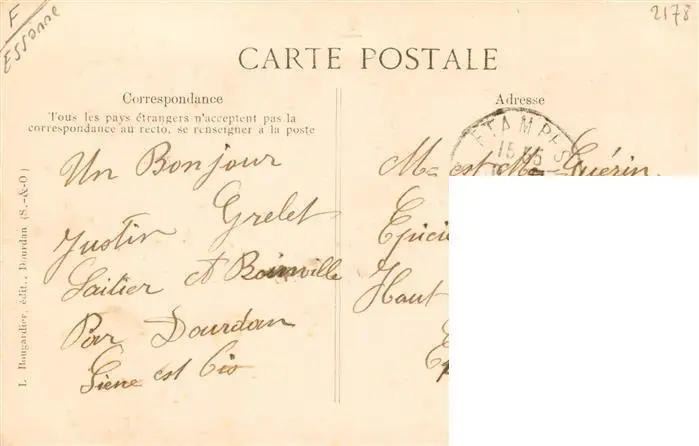 F
Essonne
2178
CARTE POSTALE
Correspondance
Tous les pays étrangers n'acceptent pas la
correspondance au recto, se renseigner à la poste
Un Bonjour
Justin Grelet
Laitier A Boinville
Par Dourdan
Seine est Ois
Adresse
ETAMPES
Mr est Me Guérin
Epici
Haut
L. Bougardier, édit., Dourdan (S.-&-O)